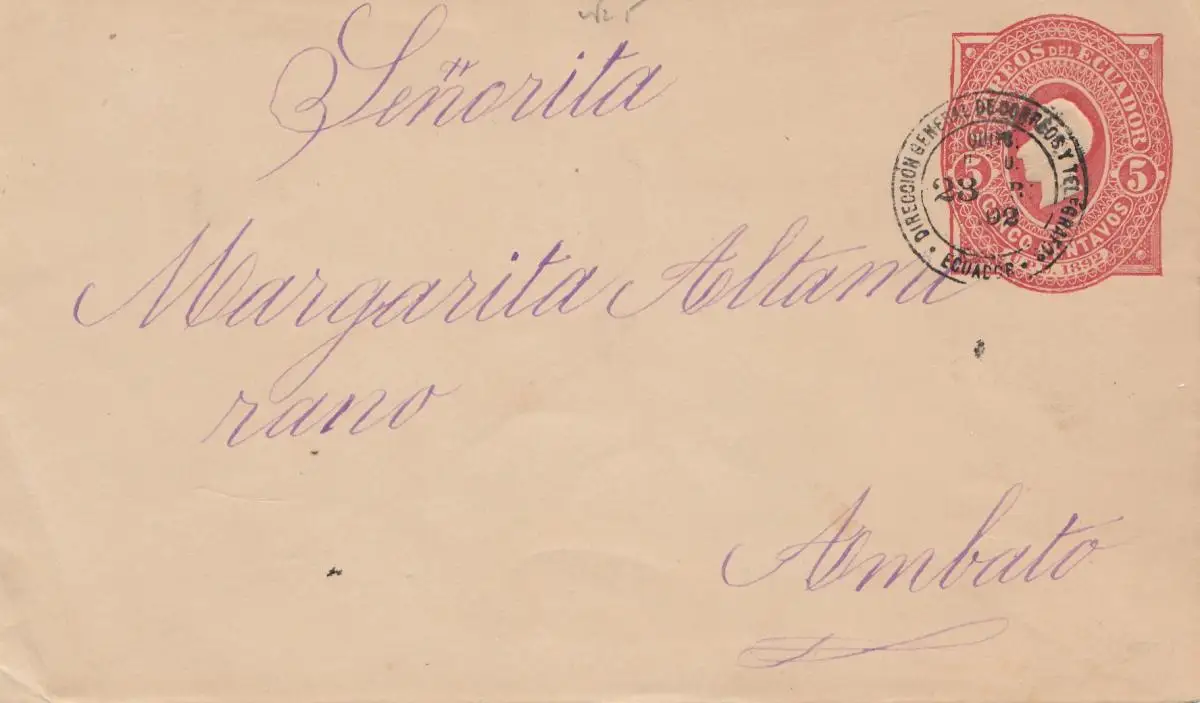 CORREOS DEL ECUADOR
5 5
CINCO CENTAVOS
1892
DIRECCION GENERAL DE CORREOS Y TELEGRAFOS
23
92
ECUADOR
Señorita
Margarita Altami
rano
Ambato